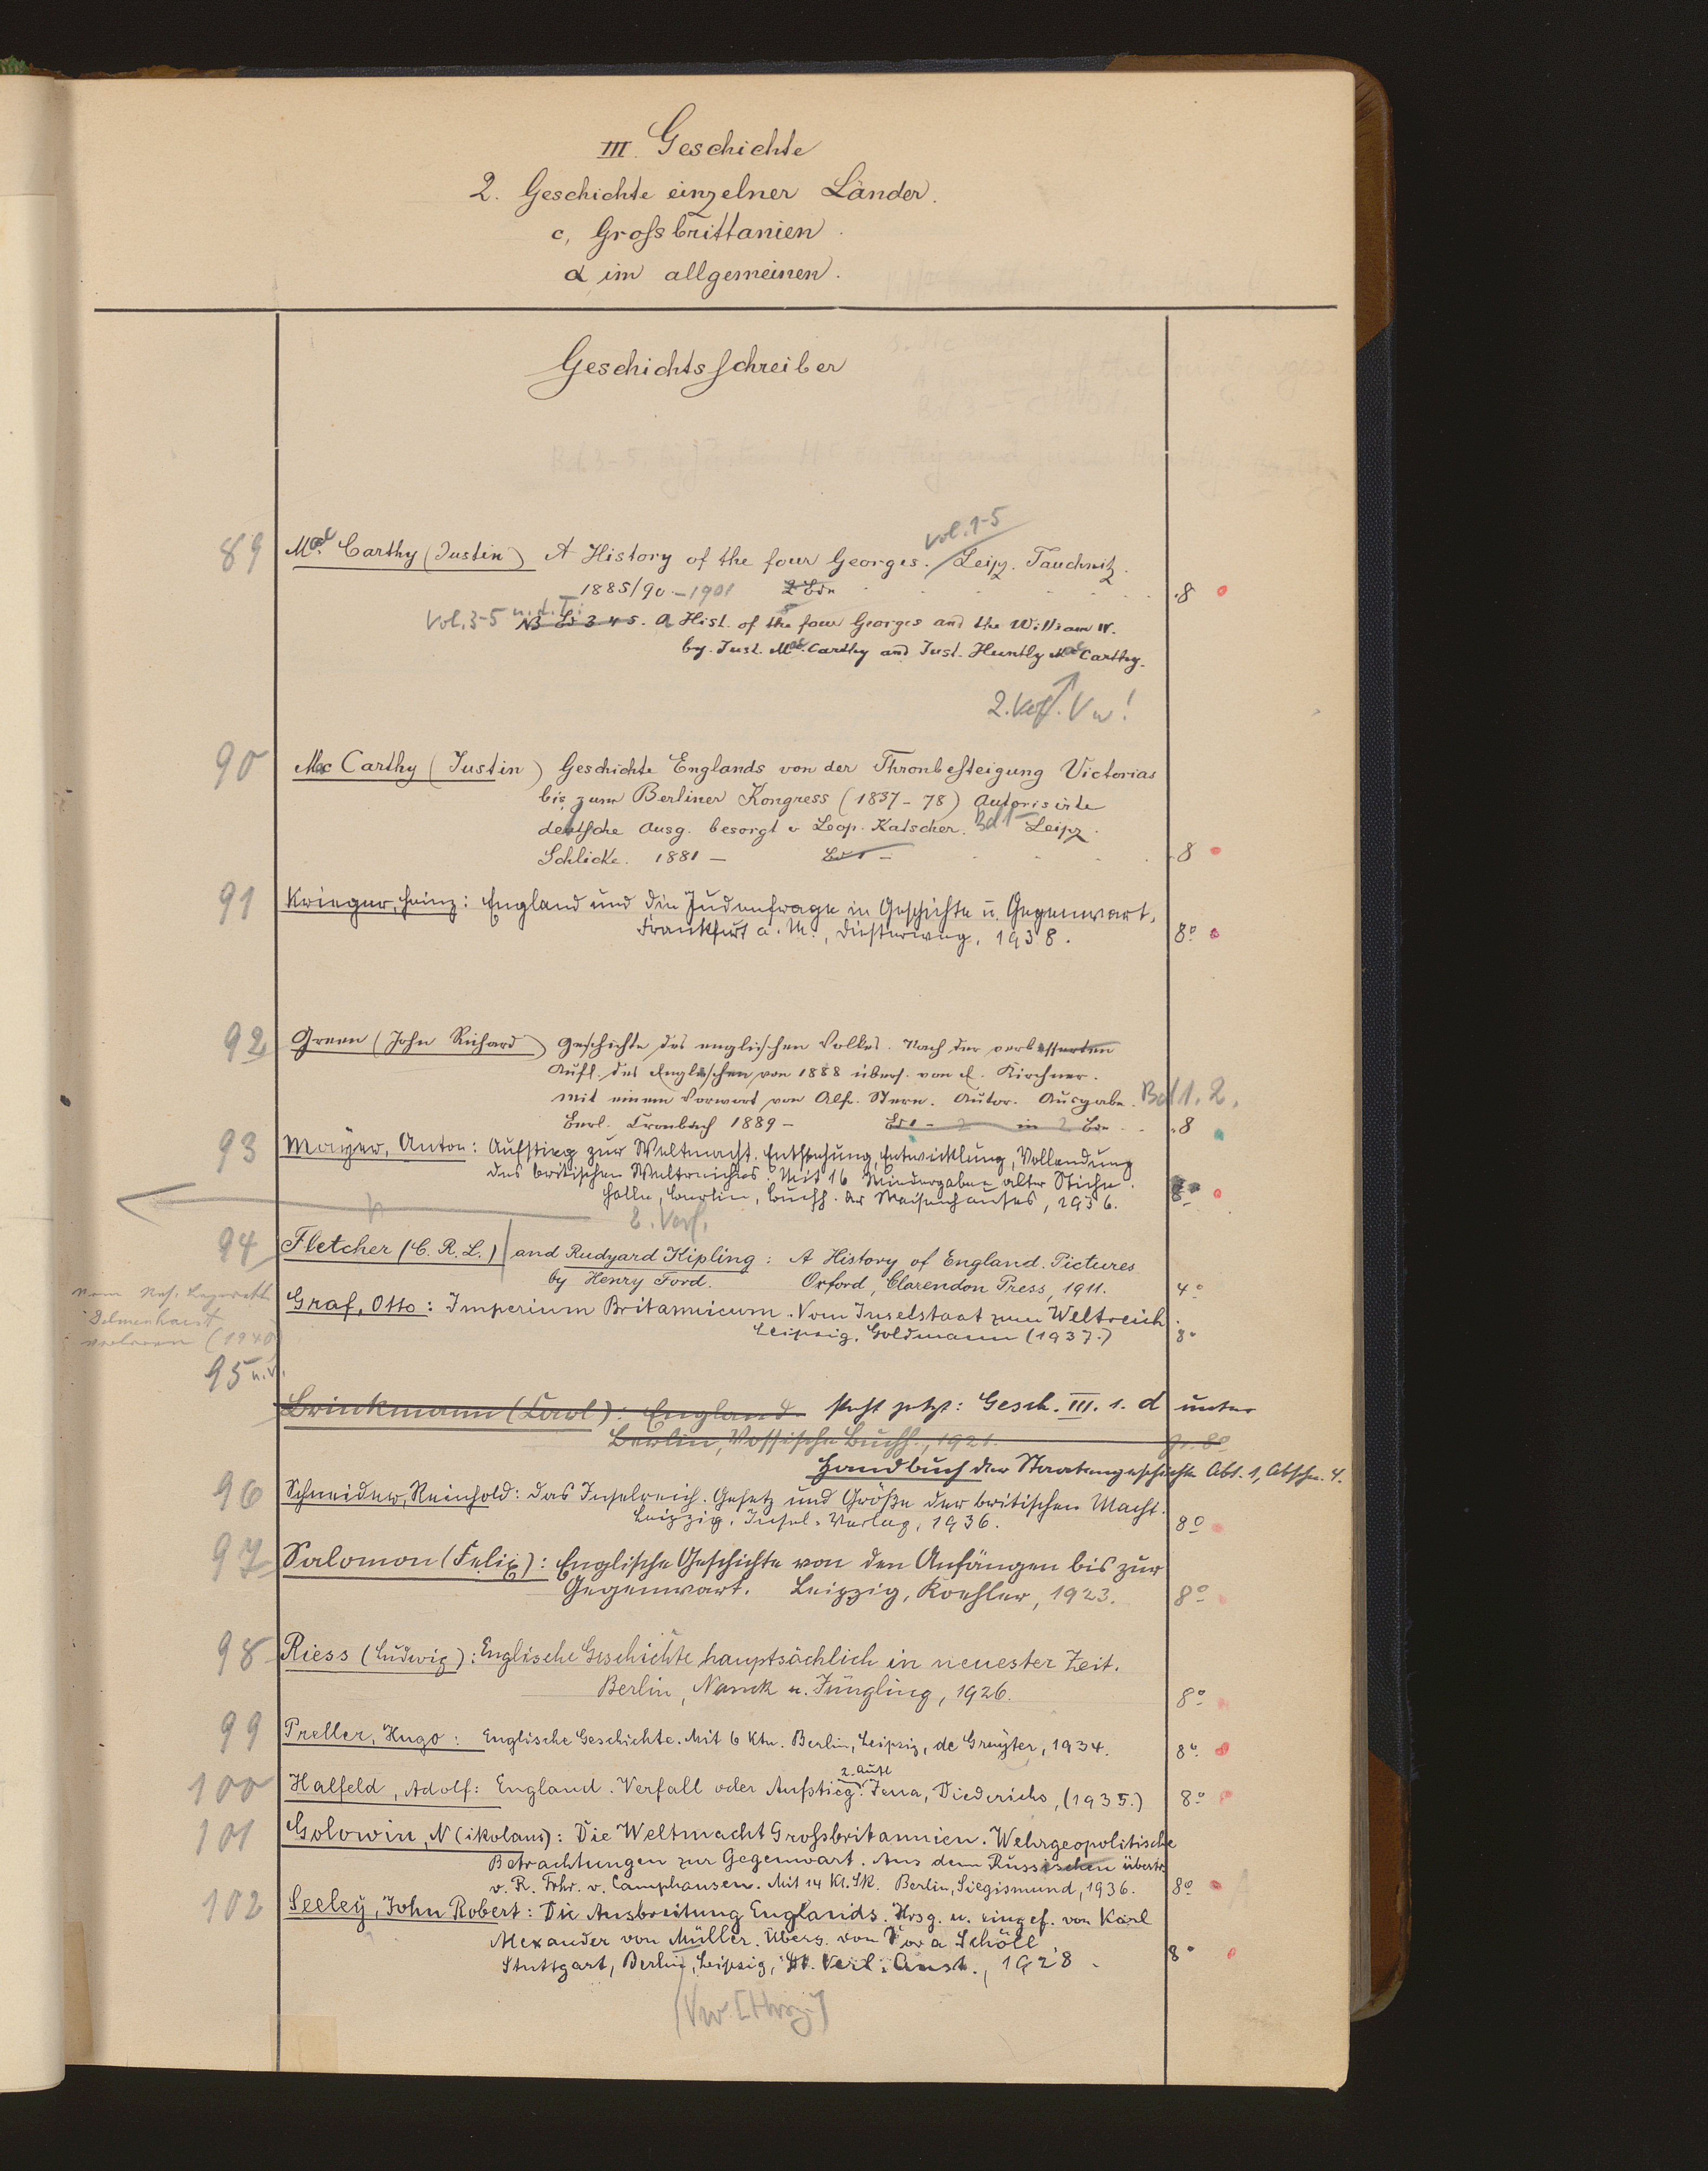 III. Geschichte
2. Geschichte einzelner Länder.
c, Grossbrittanien.
α im allgemeinen.
Geschichtsschreiber
vol. 1-5
89 Mac Carthy (Justin) A History of the four Georges. / Leipz. Tauchnitz.
1885/90 - 1901 2 Bde 8
Vol. 3-5 u. d. T.: NB Bd 3 4 5. A Hist. of the four Georges and the William IV.
by Just. Mac Carthy and Just. Huntly Mac Carthy.
2. Verf. Vw!
90 Mac Carthy (Justin) Geschichte Englands von der Thronbesteigung Victorias
bis zum Berliner Kongress (1837-78) Autorisirte
deutsche Ausg. besorgt v Leop. Katscher. Bd 1 - Leipz.
Schlicke. 1881 - Bd 1 - 8
91 Krieger, Heinz: England und die Judenfrage in Geschichte u. Gegenwart.
Frankfurt a. M., Diesterweg, 1938. 8º
92 Green (John Richard) Geschichte des englischen Volkes. Nach der verbesserten
Aufl. des Englischen von 1888 übers. von E. Kirchner.
Mit einem Vorwort von Alfr. Stern. Autor. Ausgabe. Bd 1. 2.
Berl. Cronbach 1889 - Bd 1 - 2 in 2 Bdn 8
93 Mayer, Anton: Aufstieg zur Weltmacht. Entstehung, Entwicklung, Vollendung
des britischen Weltreiches. Mit 16 Wiedergaben alter Stiche.
Halle, Berlin, Buchh. der Waisenhauses, 1936. 8º
2. Verf.
94 Fletcher (C. R. L.) and Rudyard Kipling: A History of England. Pictures
by Henry Ford. Oxford, Clarendon Press, 1911. 4º
Graf, Otto: Imperium Britannicum. Vom Inselstaat zum Weltreich.
Leipzig, Goldmann (1937.) 8º
vom Res. Lazarett
Delmenhorst
verloren (1940)
95 u.V.
Brinkmann (Carl): England. steht jetzt: Gesch. III. 1. d unter
Berlin, Vossische Buchh., 1921. gr. 8º
Handbuch der Staatengeschichte Abt. 1, Abschn. 4.
96 Schneider, Reinhold: Das Inselreich. Gesetz und Größe der britischen Macht.
Leipzig, Insel-Verlag, 1936. 8º
97 Salomon (Felix): Englische Geschichte von den Anfängen bis zur
Gegenwart. Leipzig, Koehler, 1923. 8º
98 Riess (Ludwig): Englische Geschichte hauptsächlich in neuester Zeit.
Berlin, Nauck u. Jüngling, 1926. 8º
99 Preller, Hugo: Englische Geschichte. Mit 6 Ktn. Berlin, Leipzig, de Gruyter, 1934. 8º
2. Aufl
100 Halfeld, Adolf: England. Verfall oder Aufstieg. Jena, Diederichs, (1935.) 8º
101 Golowin, N(ikolaus): Die Weltmacht Grossbritannien. Wehrgeopolitische
Betrachtungen zur Gegenwart. Aus dem Russischen übertr.
v. R. Frhr. v. Camphausen. Mit 14 Kt.Sk. Berlin, Siegismund, 1936. 8º
102 Seeley, John Robert: Die Ausbreitung Englands. Hrsg. u. eingef. von Karl
Alexander von Müller. Übers. von Dora Schöll
Stuttgart, Berlin, Leipzig, Dt. Verl. Anst., 1928. 8º
(Vw. [Hrsg.]